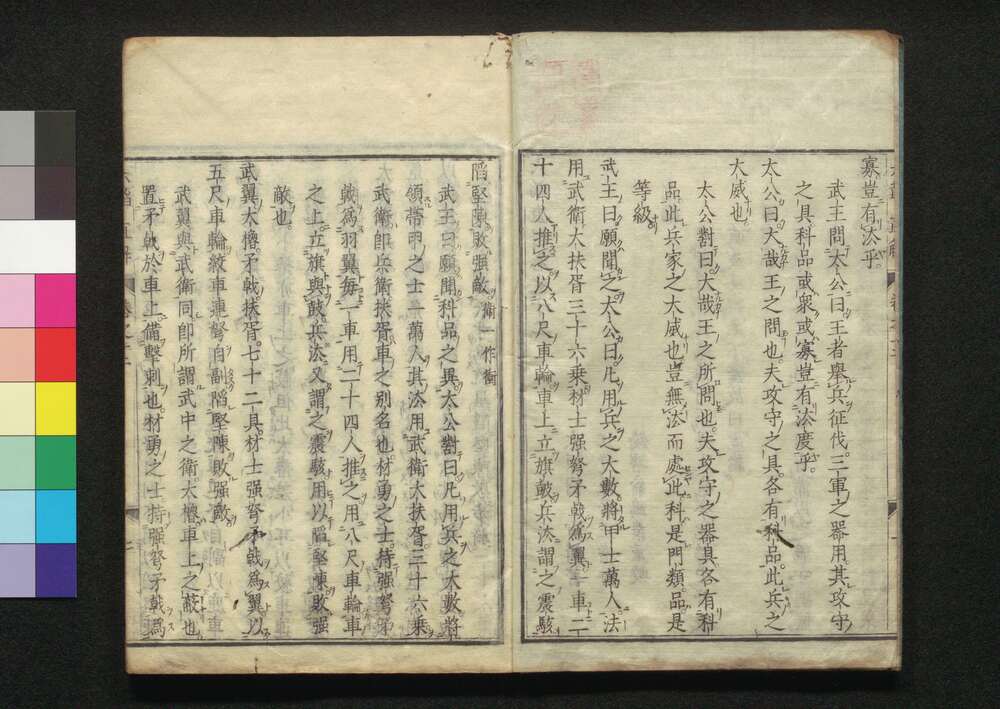 寡豈有法乎。
武王問太公曰王者舉兵征伐三軍之器用其攻守
之具科品或衆或寡豈有法度乎。
太公曰大哉王之問也。夫攻守之具。各有科品。此兵之
大威也。
太公對曰大哉王之所問也。夫攻守之器具各有科
品此兵家之大威也豈無法而處此科是門類品是
等級
武王曰願聞之太公曰凡用兵之大數將甲士萬人法
用武衛大扶胥三十六乘材士强弩矛戟為翼一車二
十四人推之以八尺車輪車上立旗鼓兵法謂之震駭
䧟堅陳敗強敵衛一作衝
武王曰願聞科品之異太公對曰凡用兵之大數將
領帶甲之士一萬人其法用武衛大扶胥三十六乘
武衛即兵衛扶胥車之別名也材勇之士持强弩矛
戟為羽翼每一車用二十四人推之用八尺車輪車
之上立旗與鼓兵法又謂之震駭用以䧟堅陳敗强
敵也。
武翼大櫓。矛戟。扶胥。七十二具。材士强弩矛戟為翼以
五尺車輪絞車連弩自副䧟堅陳敗强敵
武翼與武衛同即所謂武中之衛大櫓車上之蔽也
置矛戟於車上備擊刺也材勇之士持强弩矛戟為